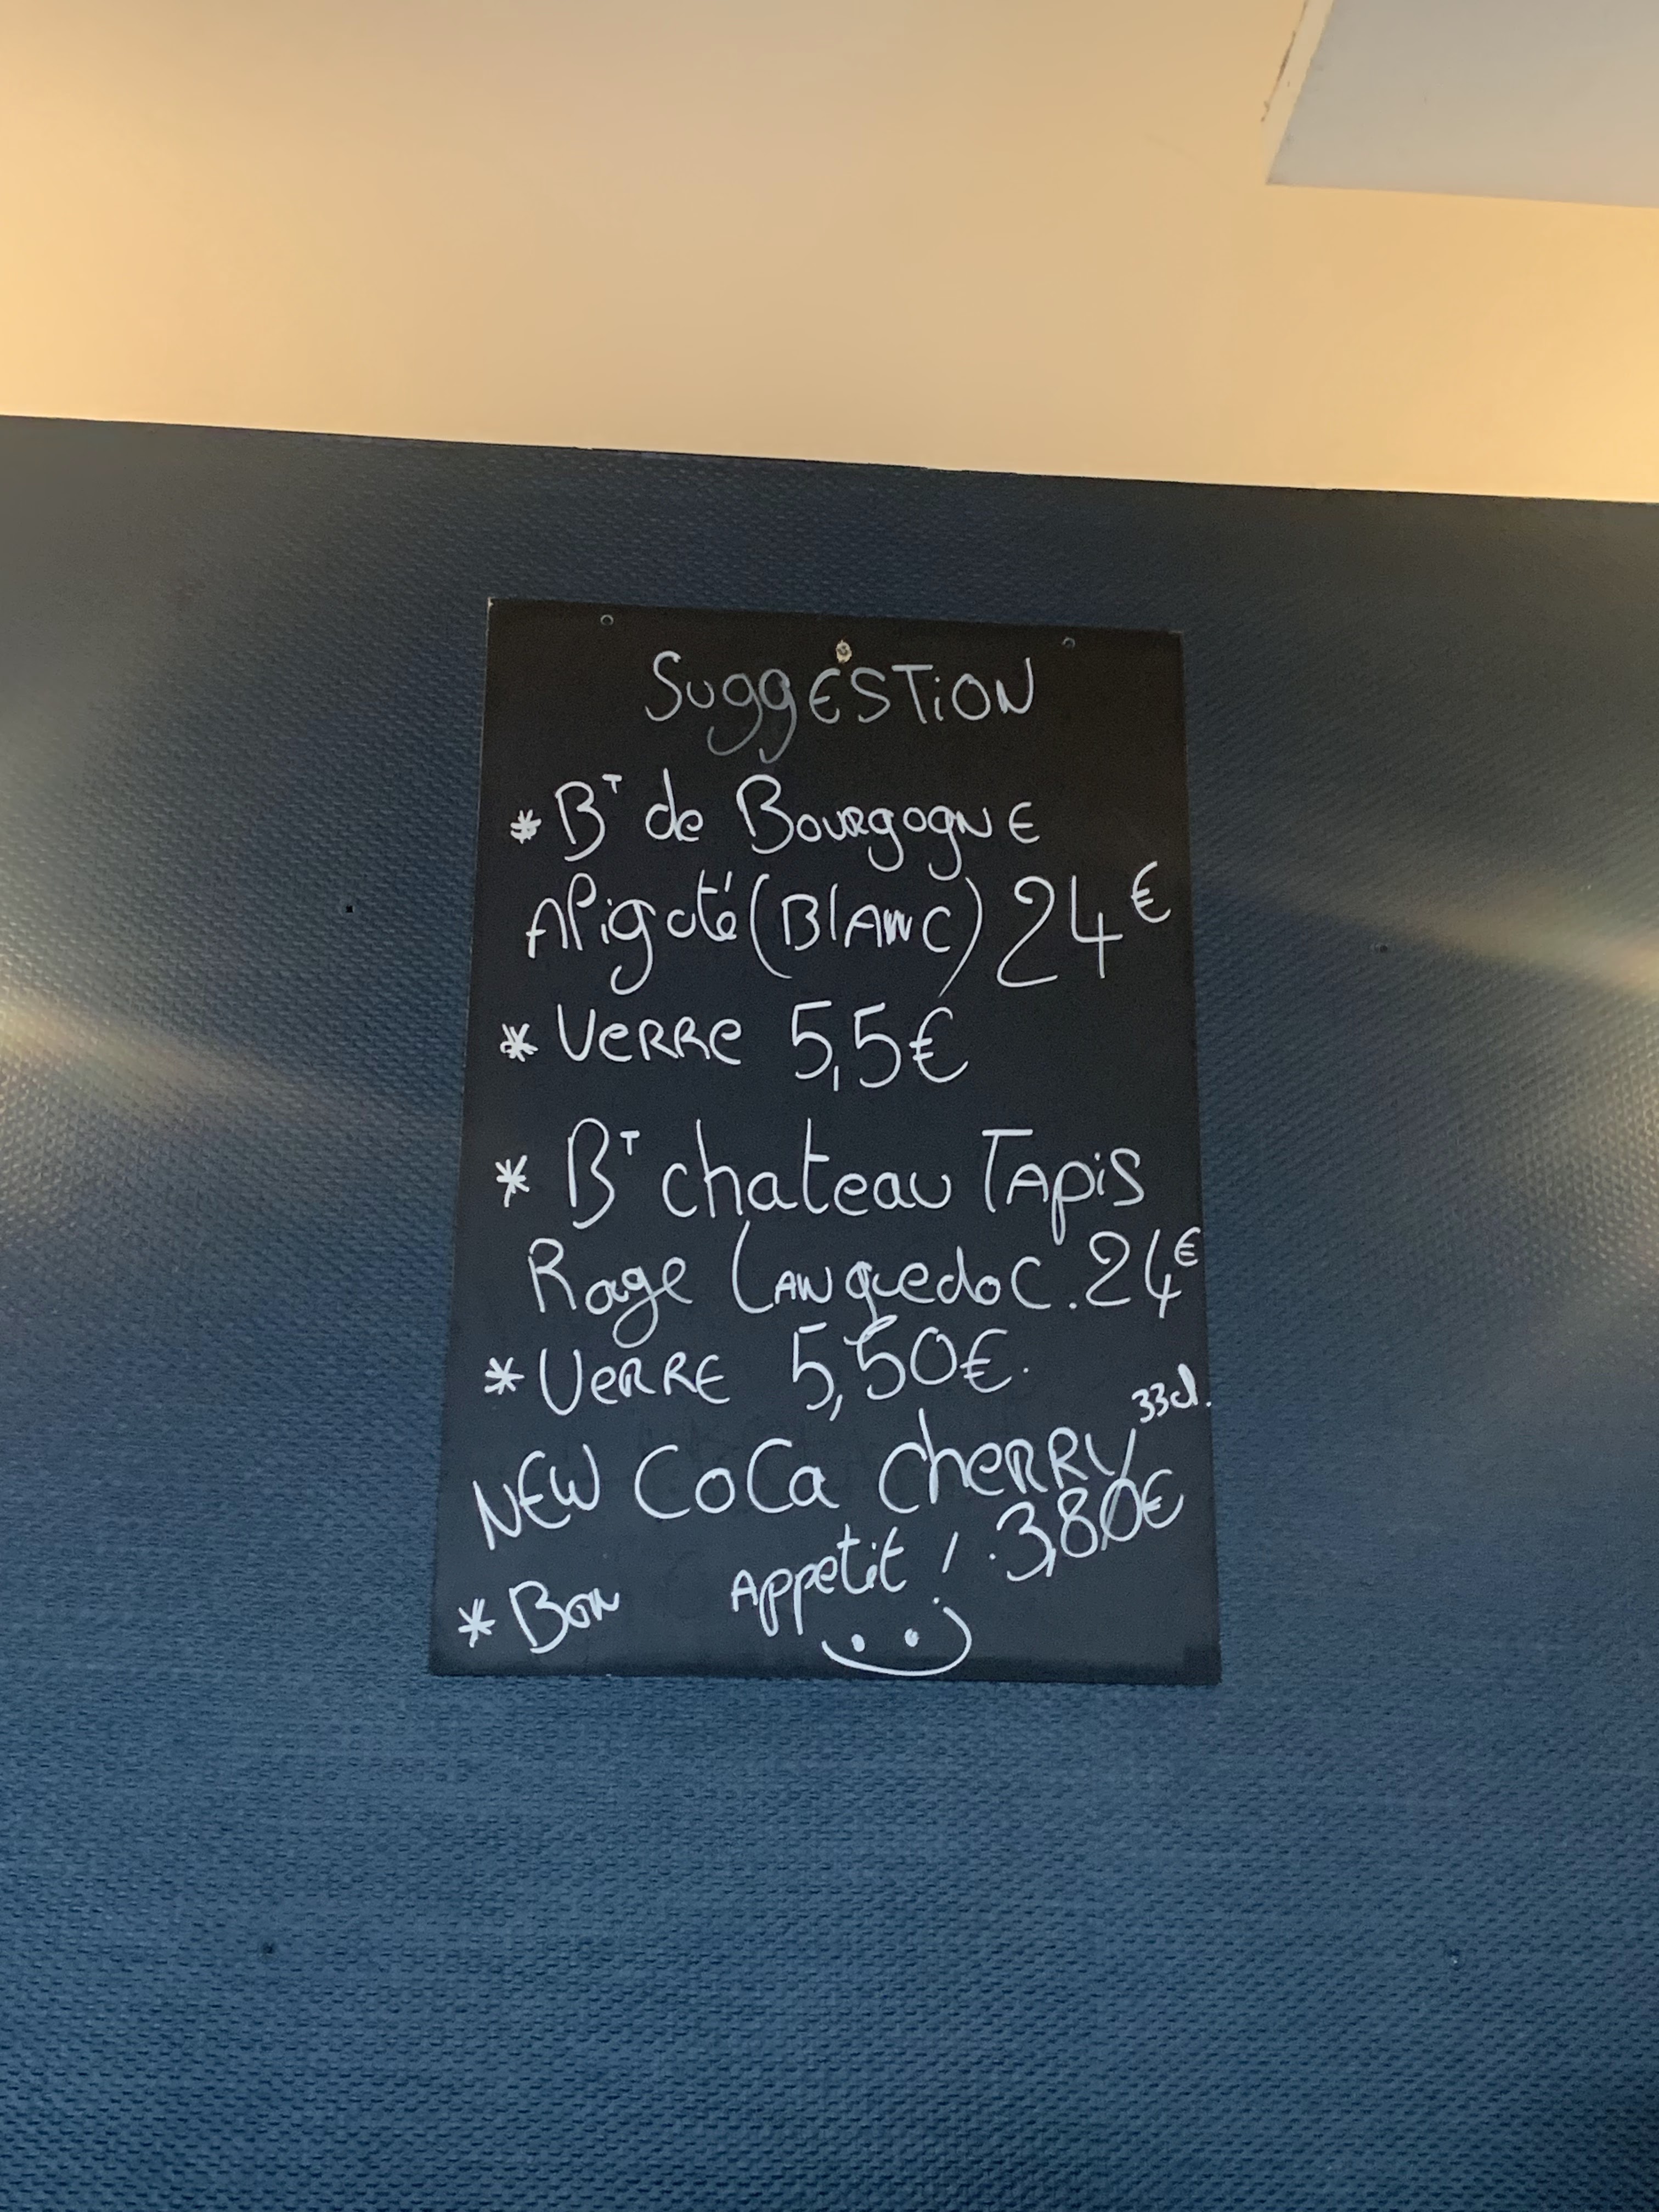 SuggESTiON
* BT de BOURgOgNE
Aligoté (BlANC) 24€
* VeRRe 5,5€
* BT chateau TApiS
Roge LANguedoC. 24€
* VeRRE 5,50€.
33cl.
NEW CoCa cheRRy
3,80€
* BON Appetit !